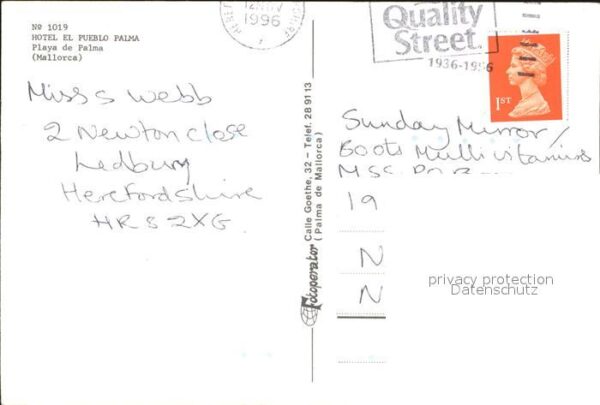 Nº 1019
HOTEL EL PUEBLO PALMA
Playa de Palma
(Mallorca)
Miss S Webb
2 Newton Close
Ledbury
Herefordshire
HR8 2XG.
Fotoperator Calle Goethe, 32 - Telef. 28 91 13
(Palma de Mallorca)
1996
Quality
Street.
1936-1996
1ST
Sunday Mirror/
Boots Multivitamins
19
N
N
privacy protection
Datenschutz